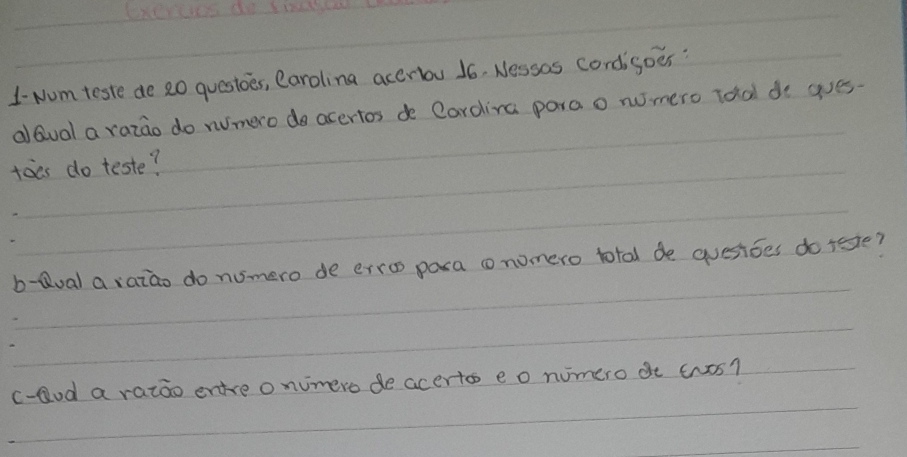 Exercícios de fixação
1-Num teste de 20 questões, Carolina acertou 16. Nessas condições:
a) Qual a razão do número de acertos de Carolina para o número total de ques-
tões do teste?
b-Qual a razão do número de erros para o número total de questões do teste?
c-Qual a razão entre o número de acertos e o número de erros?